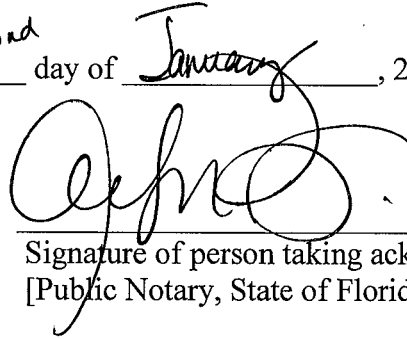 nd
day of January, 2
Signature of person taking ack
[Public Notary, State of Florid